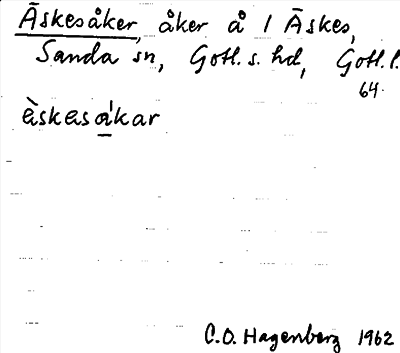 Äskesåker, åker å 1 Äskes,
Sanda sn, Gotl. s. hd, Gotl. l.
64.
èskasákar
C.O. Hagenberg 1962